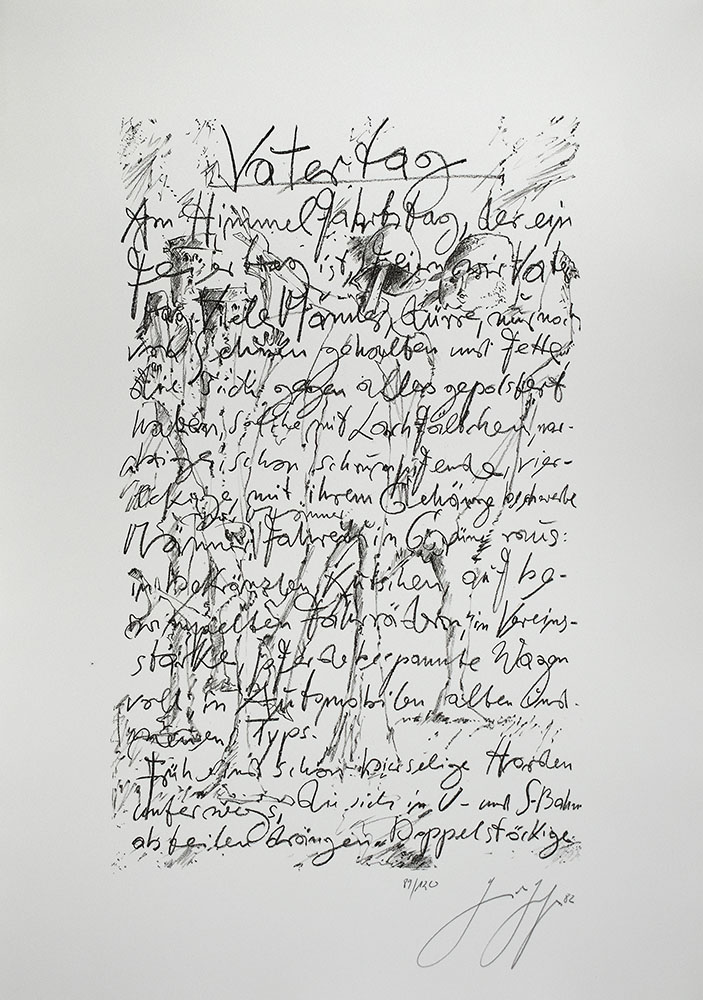 Vatertag
Am Himmelfahrtstag, der ein
Feiertag ist, feiern wir Vater-
tag. Viele Männer, dürre, nur noch
von Sehnen gehalten und fette,
die sich gegen alles gepolstert
haben, solche mit Lachfältchen, nar-
bige, schon schrumpfende, vier-
eckige, mit ihrem Gehänge beschwerte
Männer fahren in Grüne raus:
in bekränzten Kutschen, auf be-
wimpelten Fahrrädern, in Vereins-
stärke, pferdebespannte Wagen
voll, in Automobilen alten und
neuen Typs.
Früh sind schon bierselige Horden
unterwegs, die sich in U- und S-Bahn
abteilen drängen. Doppelstöckige
89/120
82